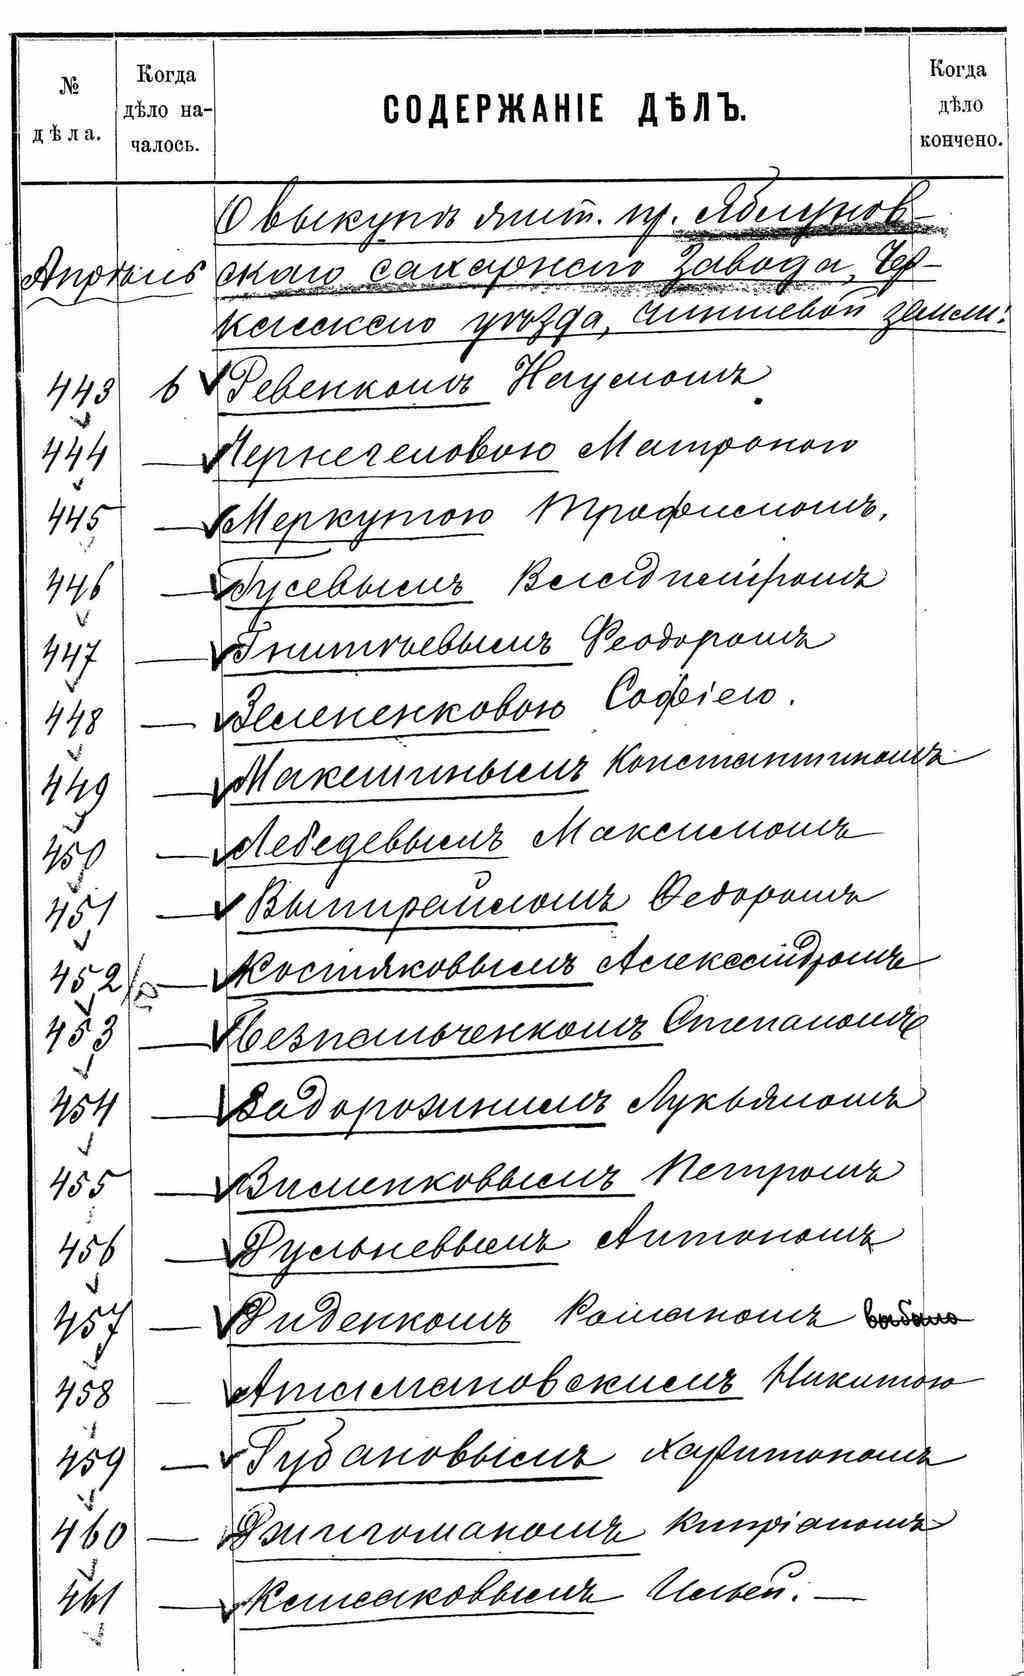 № дѣла.
Когда дѣло на-
чалось.
СОДЕРЖАНІЕ ДѢЛЪ.
Когда дѣло кончено.
О выкупѣ жит. м. Яблунов-
Апрѣль
скаго сахарнаго завода, Чер-
касскаго уѣзда, чиншевой земли:
443 6 Ревенкомъ Наумомъ
444 — Чернегеловою Матроною
445 — Меркутою Трофимомъ,
446 Гусевымъ Владиміромъ
447 — Гнитѣевымъ Феодоромъ
448 — Зелененковою Софіею.
449 — Макешинымъ Константиномъ
450 — Лебедевымъ Максимомъ
451 — Федоромъ
452 — Костяковымъ Александромъ
453 — Безпальченкомъ Степаномъ
454 — Задорожнимъ Лукьяномъ
455 — Петромъ
456 — Антономъ
457 — Диденкомъ Романомъ
458 — Атамановскимъ Никитою
459 — Губановымъ Харитономъ
460 — Джигоманомъ Кипріаномъ
461 — Ильей. —